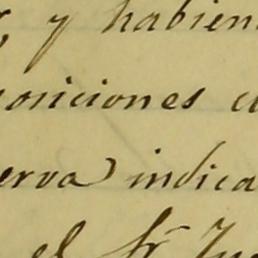 , y habien
osiciones a
erva indica
el Sr. Ju